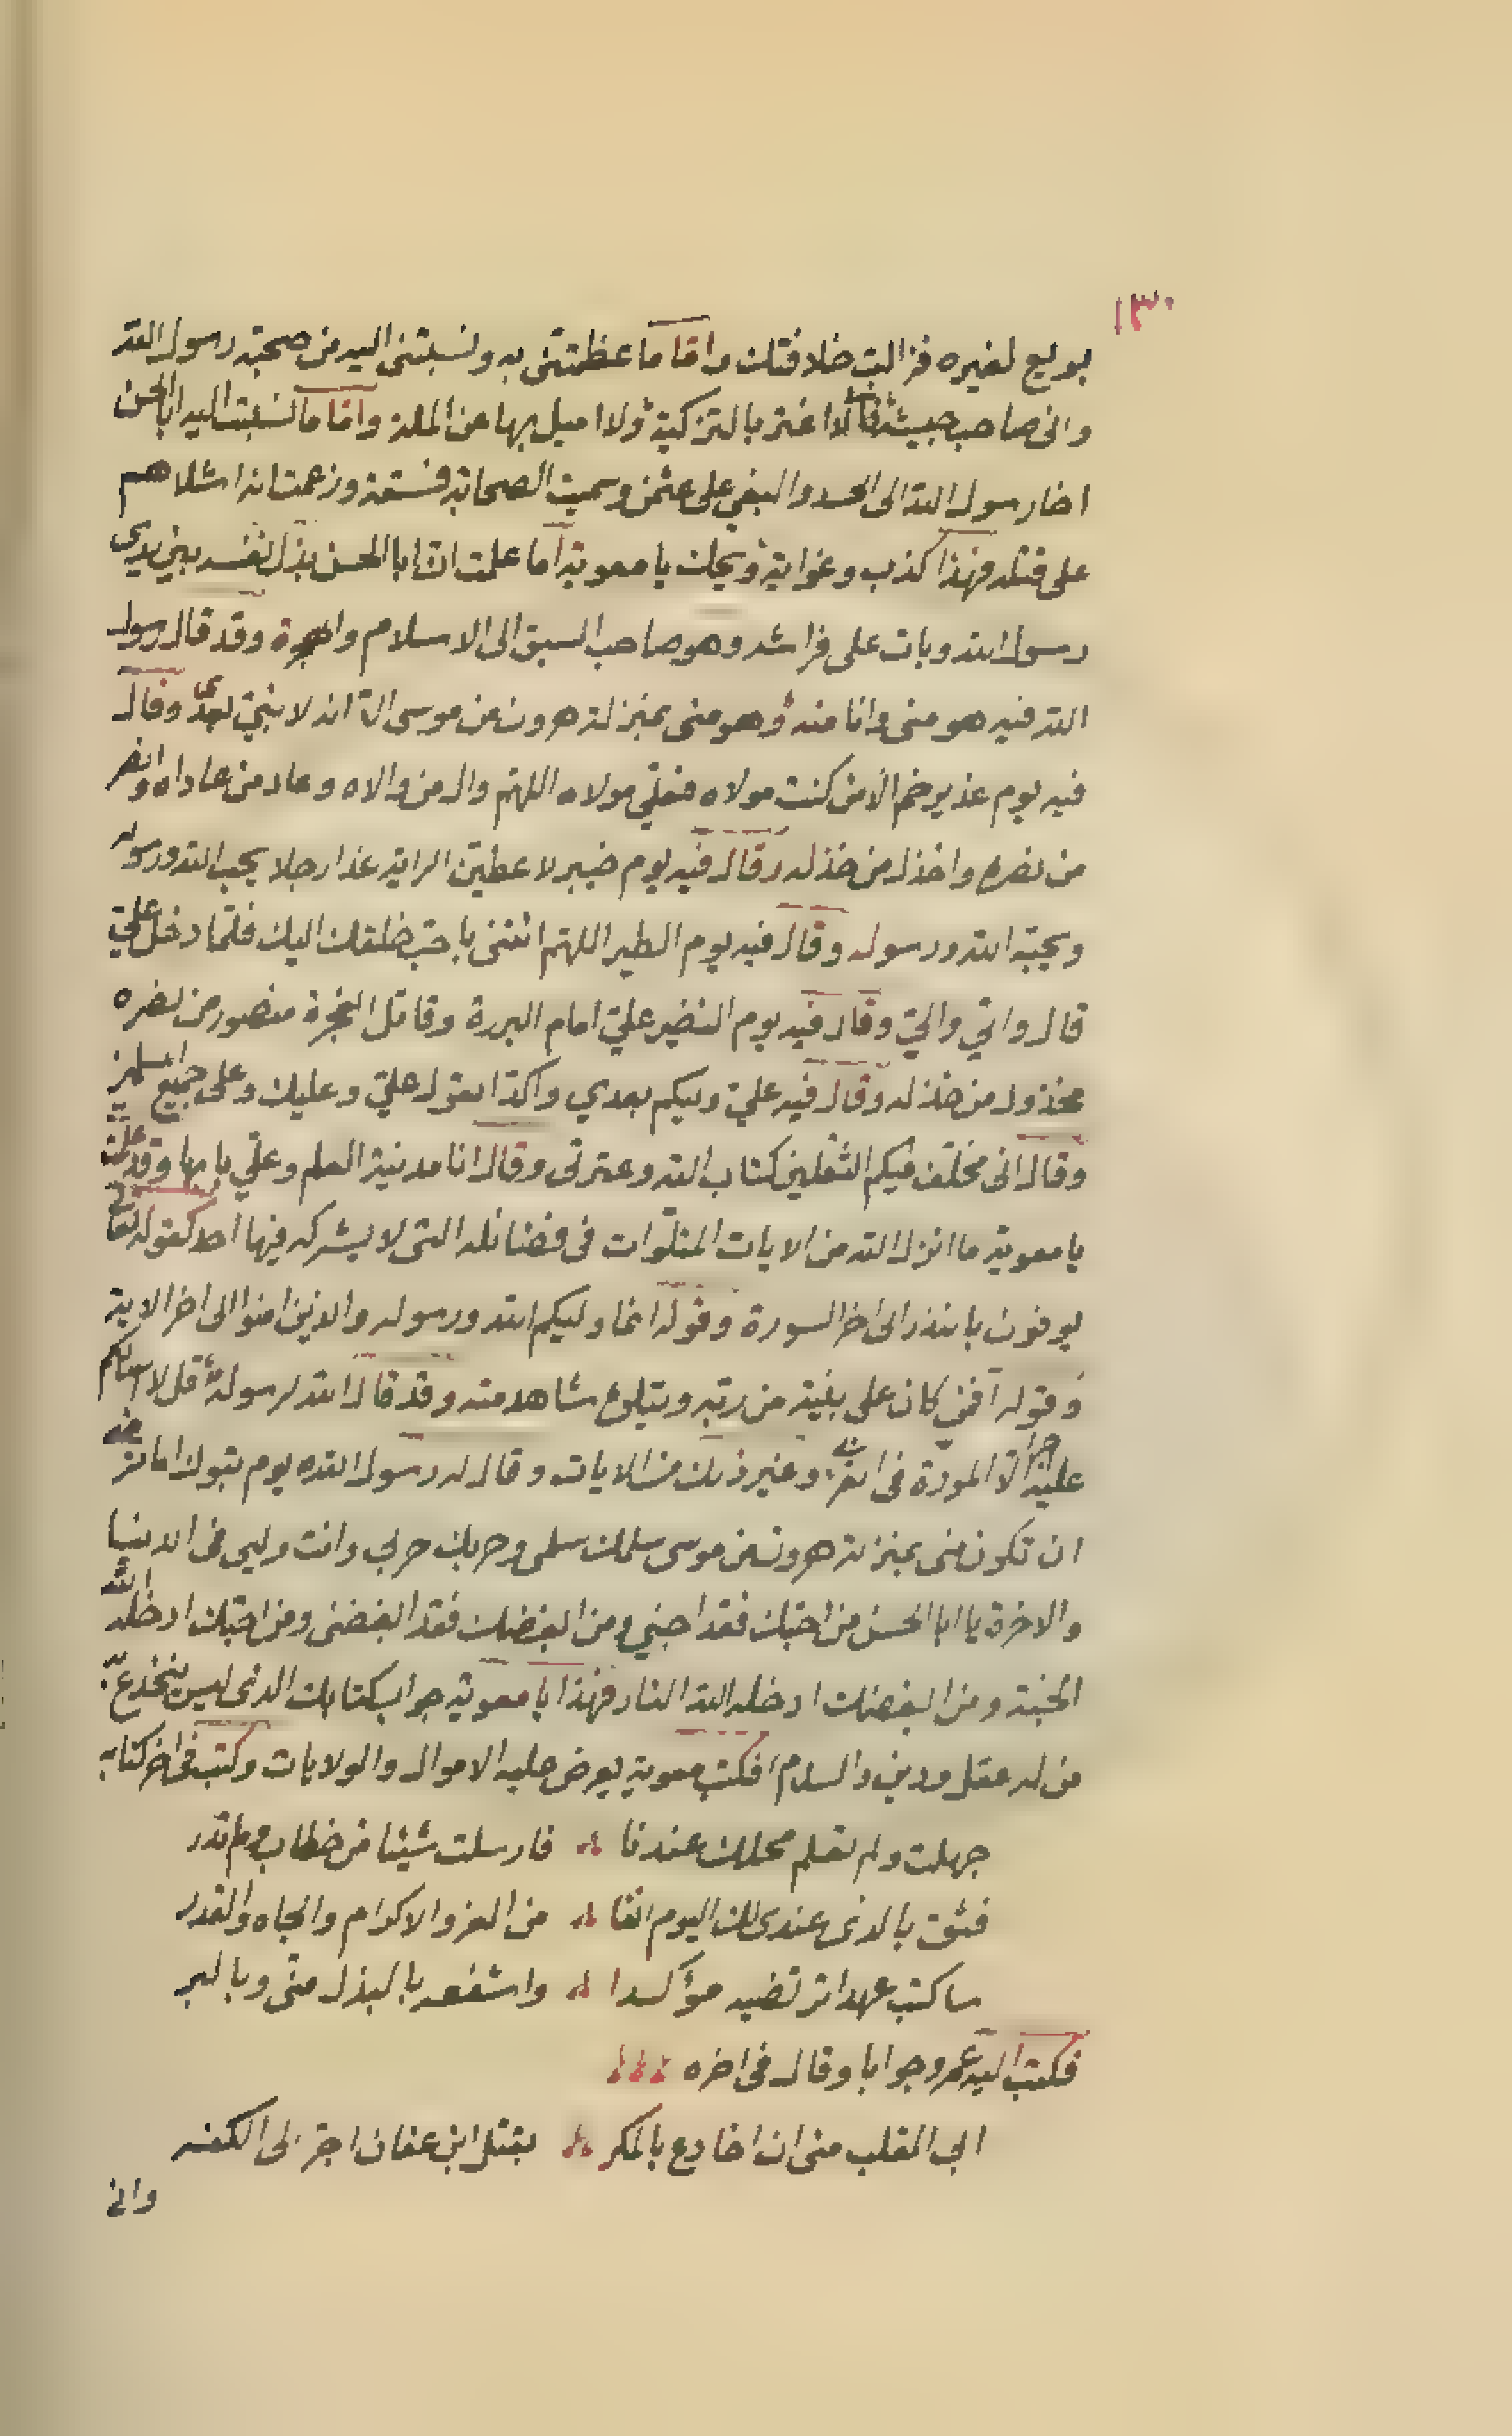 ١٣٠
بويع لغيره فزالت خلافتك واما ما عظمتنى به ونسبتنى اليه من صحبة رسول الله
وانى صاحب جيشه فلا اغتر بالتزكية ولا اميل بها عن الملة واما ما نسبت اليه ابا الحسن
اخا رسول الله الى الحسد والبغي على عثمن وسميت الصحابة فسقة وزعمت انه اشلاهم
على قتله فهذا كذب وغواية ويحك يا معوية اما علمت ان ابا الحسن بذل نفسه بين يدى
رسول الله وبات على فراشه وهو صاحب السبق الى الاسلام والهجرة وقد قال رسول
الله فيه هو منى وانا منه وهو منى بمنزلة هرون من موسى الا انه لا نبي بعدى وقال
فيه يوم غدير خم الا من كنت مولاه فعلي مولاه اللهم وال من والاه وعاد من عاداه وانصر
من نصره واخذل من خذله وقال فيه يوم خيبر لاعطين الراية غدا رجلا يحب الله ورسوله
ويحبه الله ورسوله وقال فيه يوم الطير اللهم ائتنى باحب خلقك اليك فلما دخل علي
قال والي والي وقال فيه يوم النضير علي امام البررة وقاتل الفجرة منصور من نصره
مخذول من خذله وقال فيه علي وليكم بعدي واكد القول علي وعليك وعلى جميع المسلمين
وقال انى مخلف فيكم الثقلين كتاب الله وعترتى وقال انا مدينة العلم وعلي بابها وقد علمت
يا معوية ما انزل الله من الايات المتلوات فى فضائله التى لا يشركه فيها احد كقوله تعالى
يوفون بالنذر الى اخر السورة وقوله انما وليكم الله ورسوله والذين امنوا الى اخر الاية
وقوله افمن كان على بينة من ربه ويتلوه شاهد منه وقد قال الله لرسوله قل لا اسالكم
عليه اجرا الا المودة فى القربى وغير ذلك من الايات وقال له رسول الله يوم تبوك اما ترضى
ان تكون منى بمنزلة هرون من موسى سلمك سلمى وحربك حربي وانت وليي فى الدنيا
والاخرة يا ابا الحسن من احبك فقد احبني ومن ابغضك فقد ابغضنى ومن احبك ادخله الله
الجنة ومن ابغضك ادخله الله النار فهذا يا معوية جواب كتابك الذى ليس ينخدع به
من له عقل ودين والسلام فكتب معوية يعرض عليه الاموال والولايات وكتب فى اخر كتابه
جهلت ولم تعلم محلك عندنا فارسلت شيئا من خطاب ولم تدر
فثق بالذى عندى لك اليوم انفا من العز والاكرام والجاه والقدر
ساكتب عهدا ترتضيه مؤكدا واشفعه بالبذل منى وبالبر
فكتب اليه عمرو جوابا وقال فى اخره
ابى القلب منى ان اخادع بالمكر بقتل ابن عفان اجر الى الكفر
وانى